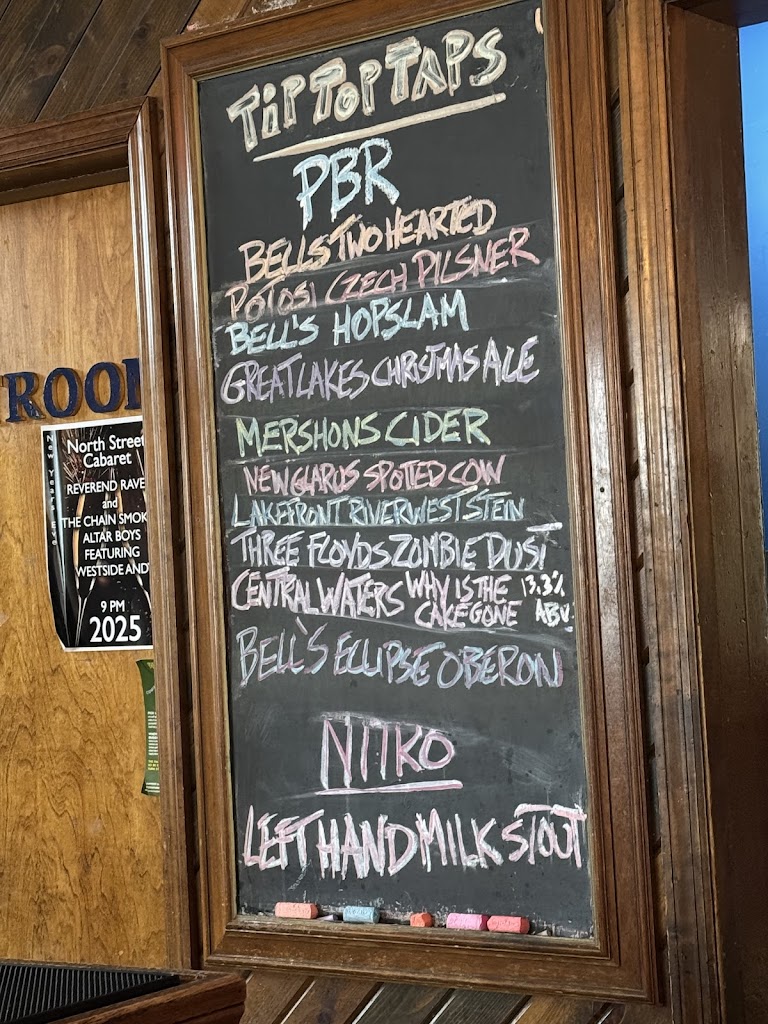 TIP TOP TAPS
PBR
BELLS TWO HEARTED
POTOSI CZECH PILSNER
BELL'S HOPSLAM
GREAT LAKES CHRISTMAS ALE
MERSHONS CIDER
NEW GLARUS SPOTTED COW
LAKEFRONT RIVERWEST STEIN
THREE FLOYDS ZOMBIE DUST
CENTRAL WATERS WHY IS THE 13.3%
CAKE GONE ABV.
BELL'S ECLIPSE OBERON
NITRO
LEFT HAND MILK STOUT
ROOM
New Years Eve
North Street
Cabaret
REVEREND RAVE
and
THE CHAIN SMOK
ALTAR BOYS
FEATURING
WESTSIDE AND
9 PM
2025